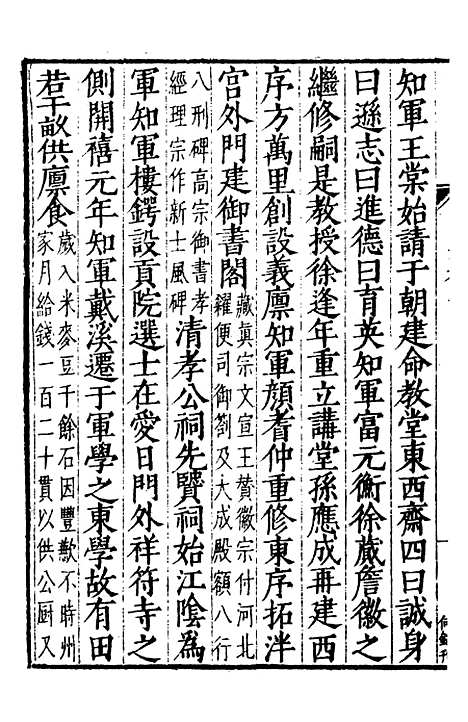 知軍王棠始請于朝建命教堂東西齋四曰誠身
曰遜志曰進德曰育英知軍富元衡徐蕆詹徽之
繼修嗣是教授徐逢年重立講堂孫應成再建西
序方萬里創設義廪知軍顔耆仲重修東序拓泮
宮外門建御書閣藏真宗文宣王贊徽宗付河北
糴便司御劄及大成殿額八行
八刑碑高宗御書孝
經理宗作新士風碑清孝公祠先賢祠始江陰爲
軍知軍樓鍔設貢院選士在愛日門外祥符寺之
側開禧元年知軍戴溪遷于軍學之東學故有田
若干畝供廪食歲入米麥豆千餘石因豐歉不時州
家月給錢一百二十貫以供公厨又